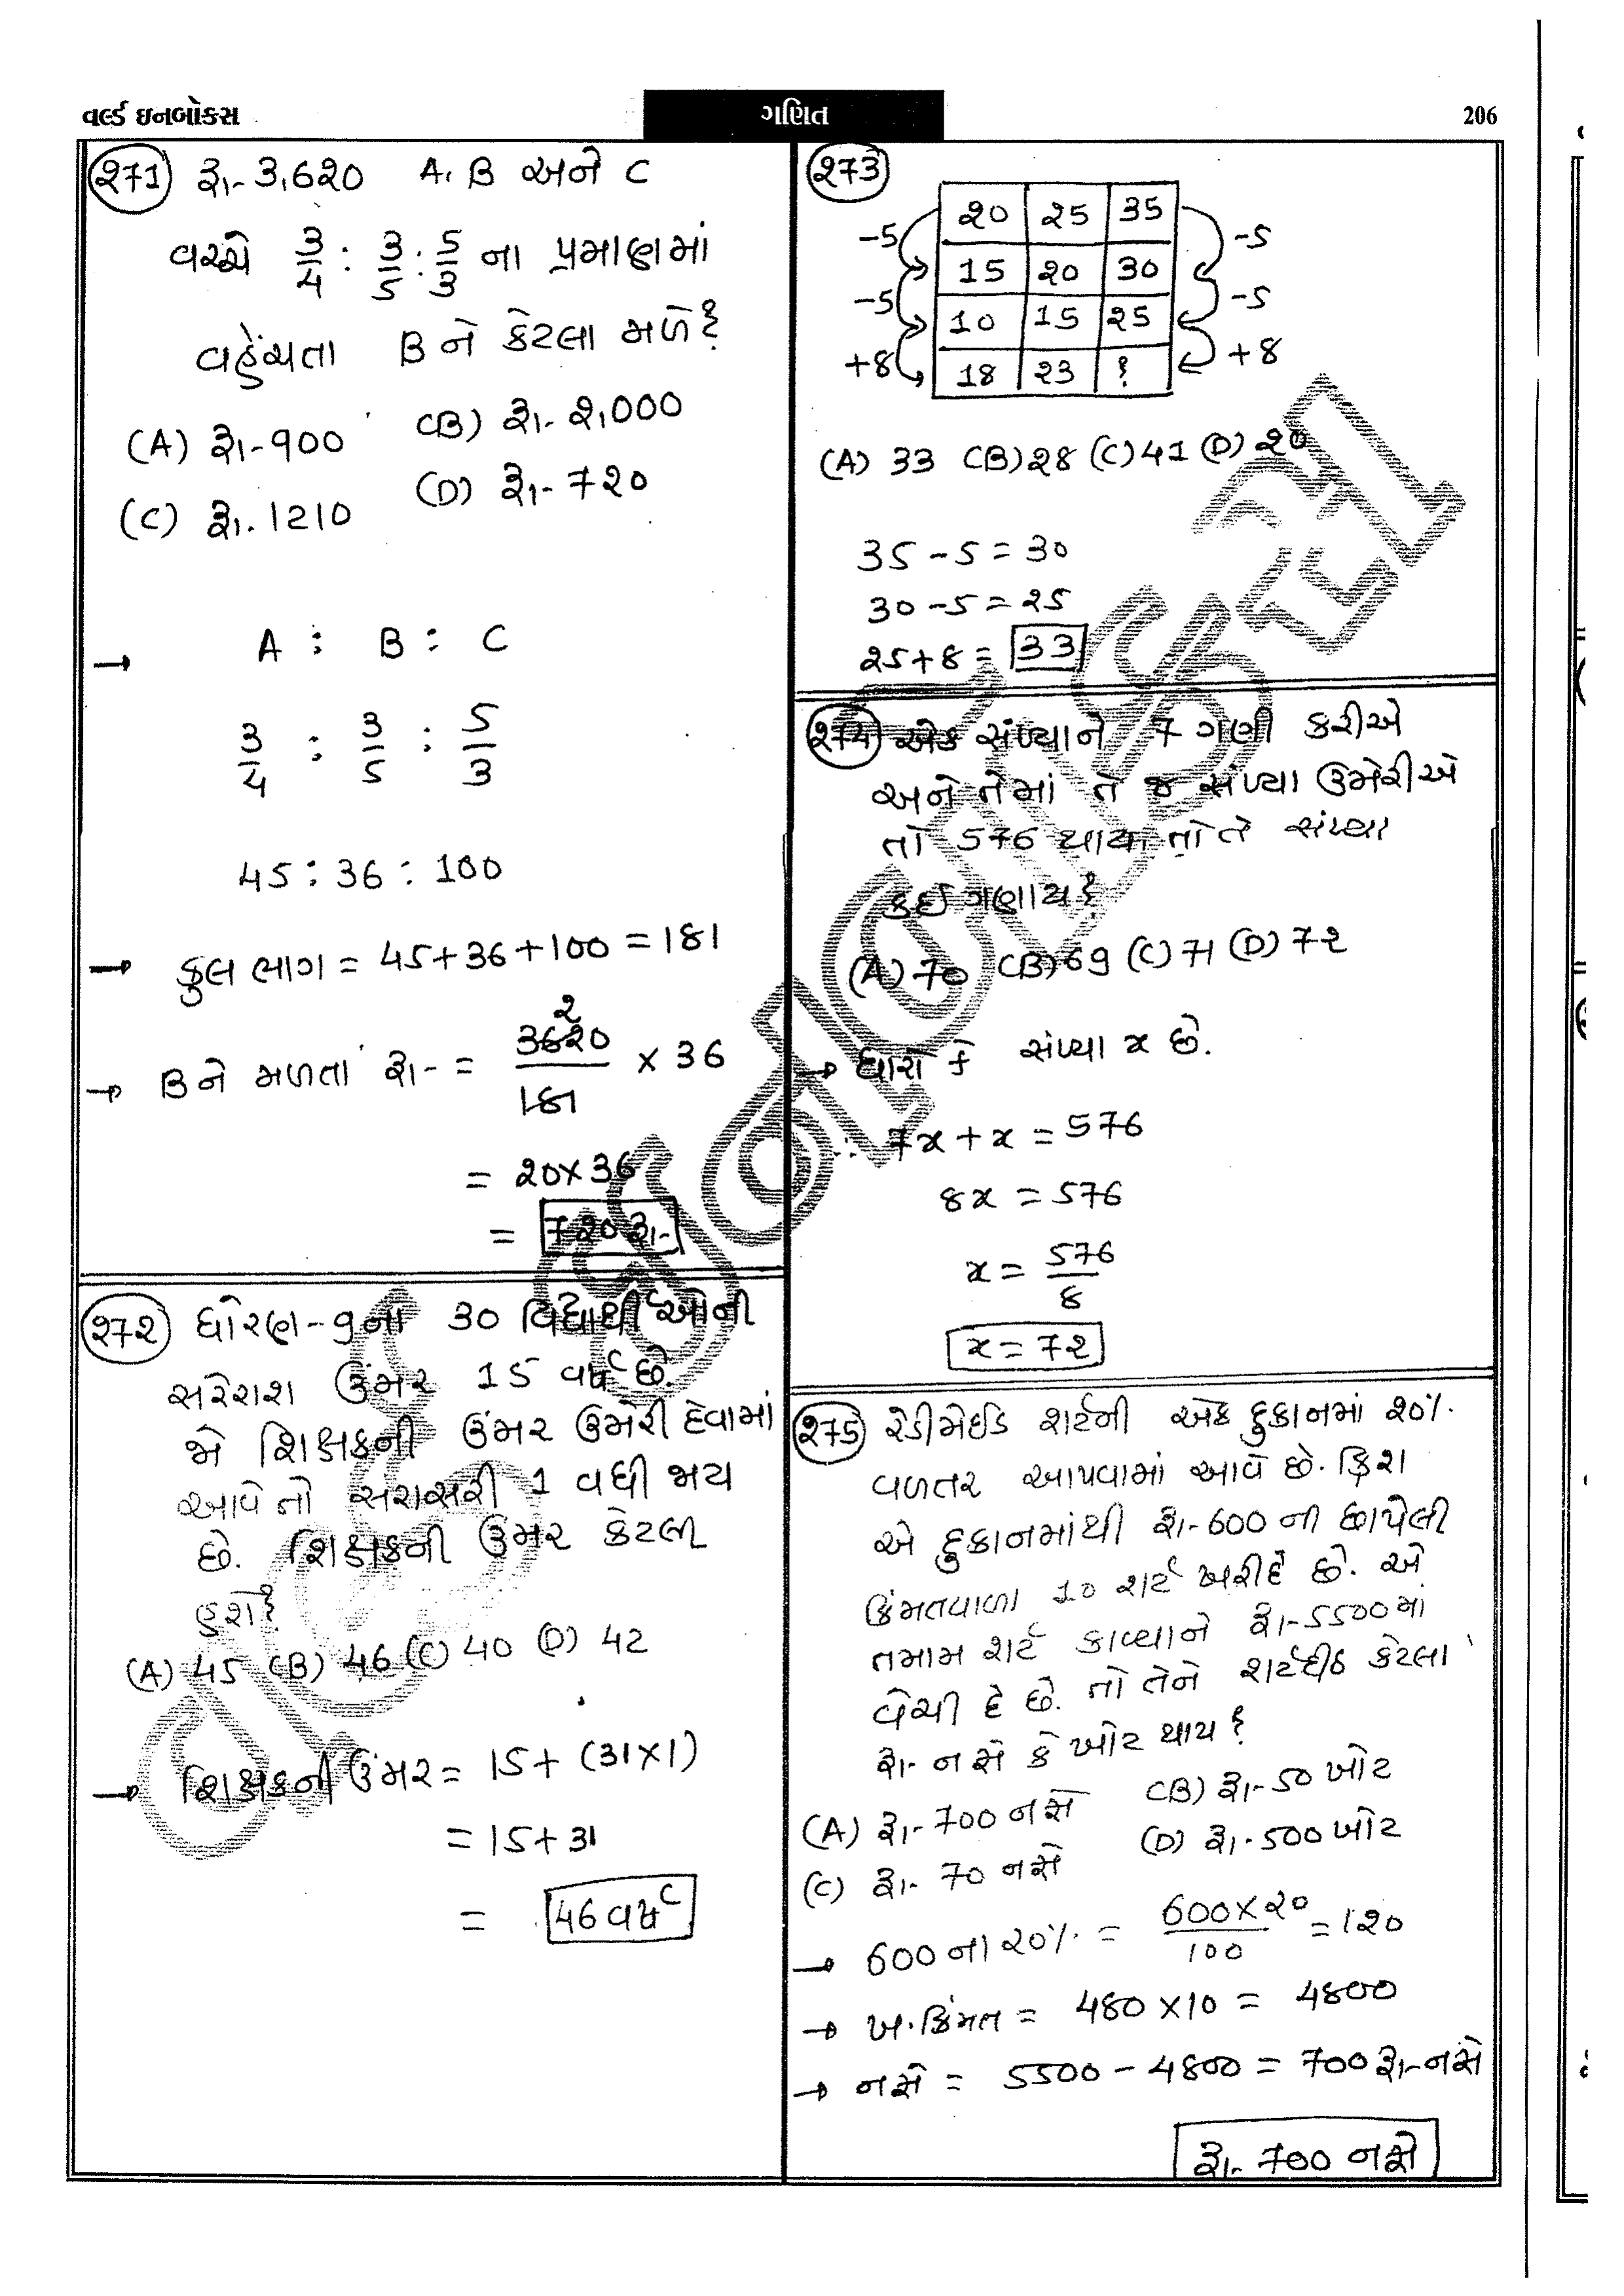 વર્લ્ડ ઇનબોક્સ
ગણિત
206
271 રૂા- 3,620 A, B અને C
વચ્ચે 3/4 : 3/5 : 5/3 ના પ્રમાણમાં
વહેંચતા B ને કેટલા મળે?
(A) રૂા-900 (B) રૂા- 2,000
(C) રૂા. 1210 (D) રૂા- 720
→ A : B : C
3/4 : 3/5 : 5/3
45 : 36 : 100
→ કુલ ભાગ = 45+36+100 = 181
→ B ને મળતાં રૂા- = 3620/181 × 36
2
= 20×36
= 720 રૂા-
272 ધોરણ-9ના 30 વિદ્યાર્થીઓની
સરેરાશ ઉંમર 15 વર્ષ છે.
જો શિક્ષકની ઉંમર ઉમેરી દેવામાં
આવે તો સરાસરી 1 વધી જાય
છે. શિક્ષકની ઉંમર કેટલી
હશે?
(A) 45 (B) 46 (C) 40 (D) 42
→ શિક્ષકની ઉંમર = 15 + (31×1)
= 15 + 31
= 46 વર્ષ
273
20 25 35
-5 -5
15 20 30
-5 -5
10 15 25
+8 +8
18 23 ?
(A) 33 (B) 28 (C) 41 (D) 20
35 - 5 = 30
30 - 5 = 25
25 + 8 = 33
274 એક સંખ્યાને 7 ગણી કરીએ
અને તેમાં તે જ સંખ્યા ઉમેરીએ
તો 576 થાય તો તે સંખ્યા
કઈ ગણાય?
(A) 70 (B) 69 (C) 71 (D) 72
→ ધારો કે સંખ્યા x છે.
∴ 7x + x = 576
8x = 576
x = 576/8
x = 72
275 રેડીમેઈડ શર્ટની એક દુકાનમાં 20%
વળતર આપવામાં આવે છે. ક્રિશ
એ દુકાનમાંથી રૂા-600 ની છાપેલી
કિંમતવાળા 10 શર્ટ ખરીદે છે. એ
તમામ શર્ટ કાવ્યાને રૂા-5500માં
વેચી દે છે. તો તેને શર્ટદીઠ કેટલા
રૂા- નફો કે ખોટ થાય?
(A) રૂા- 700 નફો (B) રૂા- 50 ખોટ
(C) રૂા- 70 નફો (D) રૂા- 500 ખોટ
→ 600 ના 20% = 600×20/100 = 120
→ ખ. કિંમત = 480 × 10 = 4800
→ નફો = 5500 - 4800 = 700 રૂા- નફો
રૂા- 700 નફો